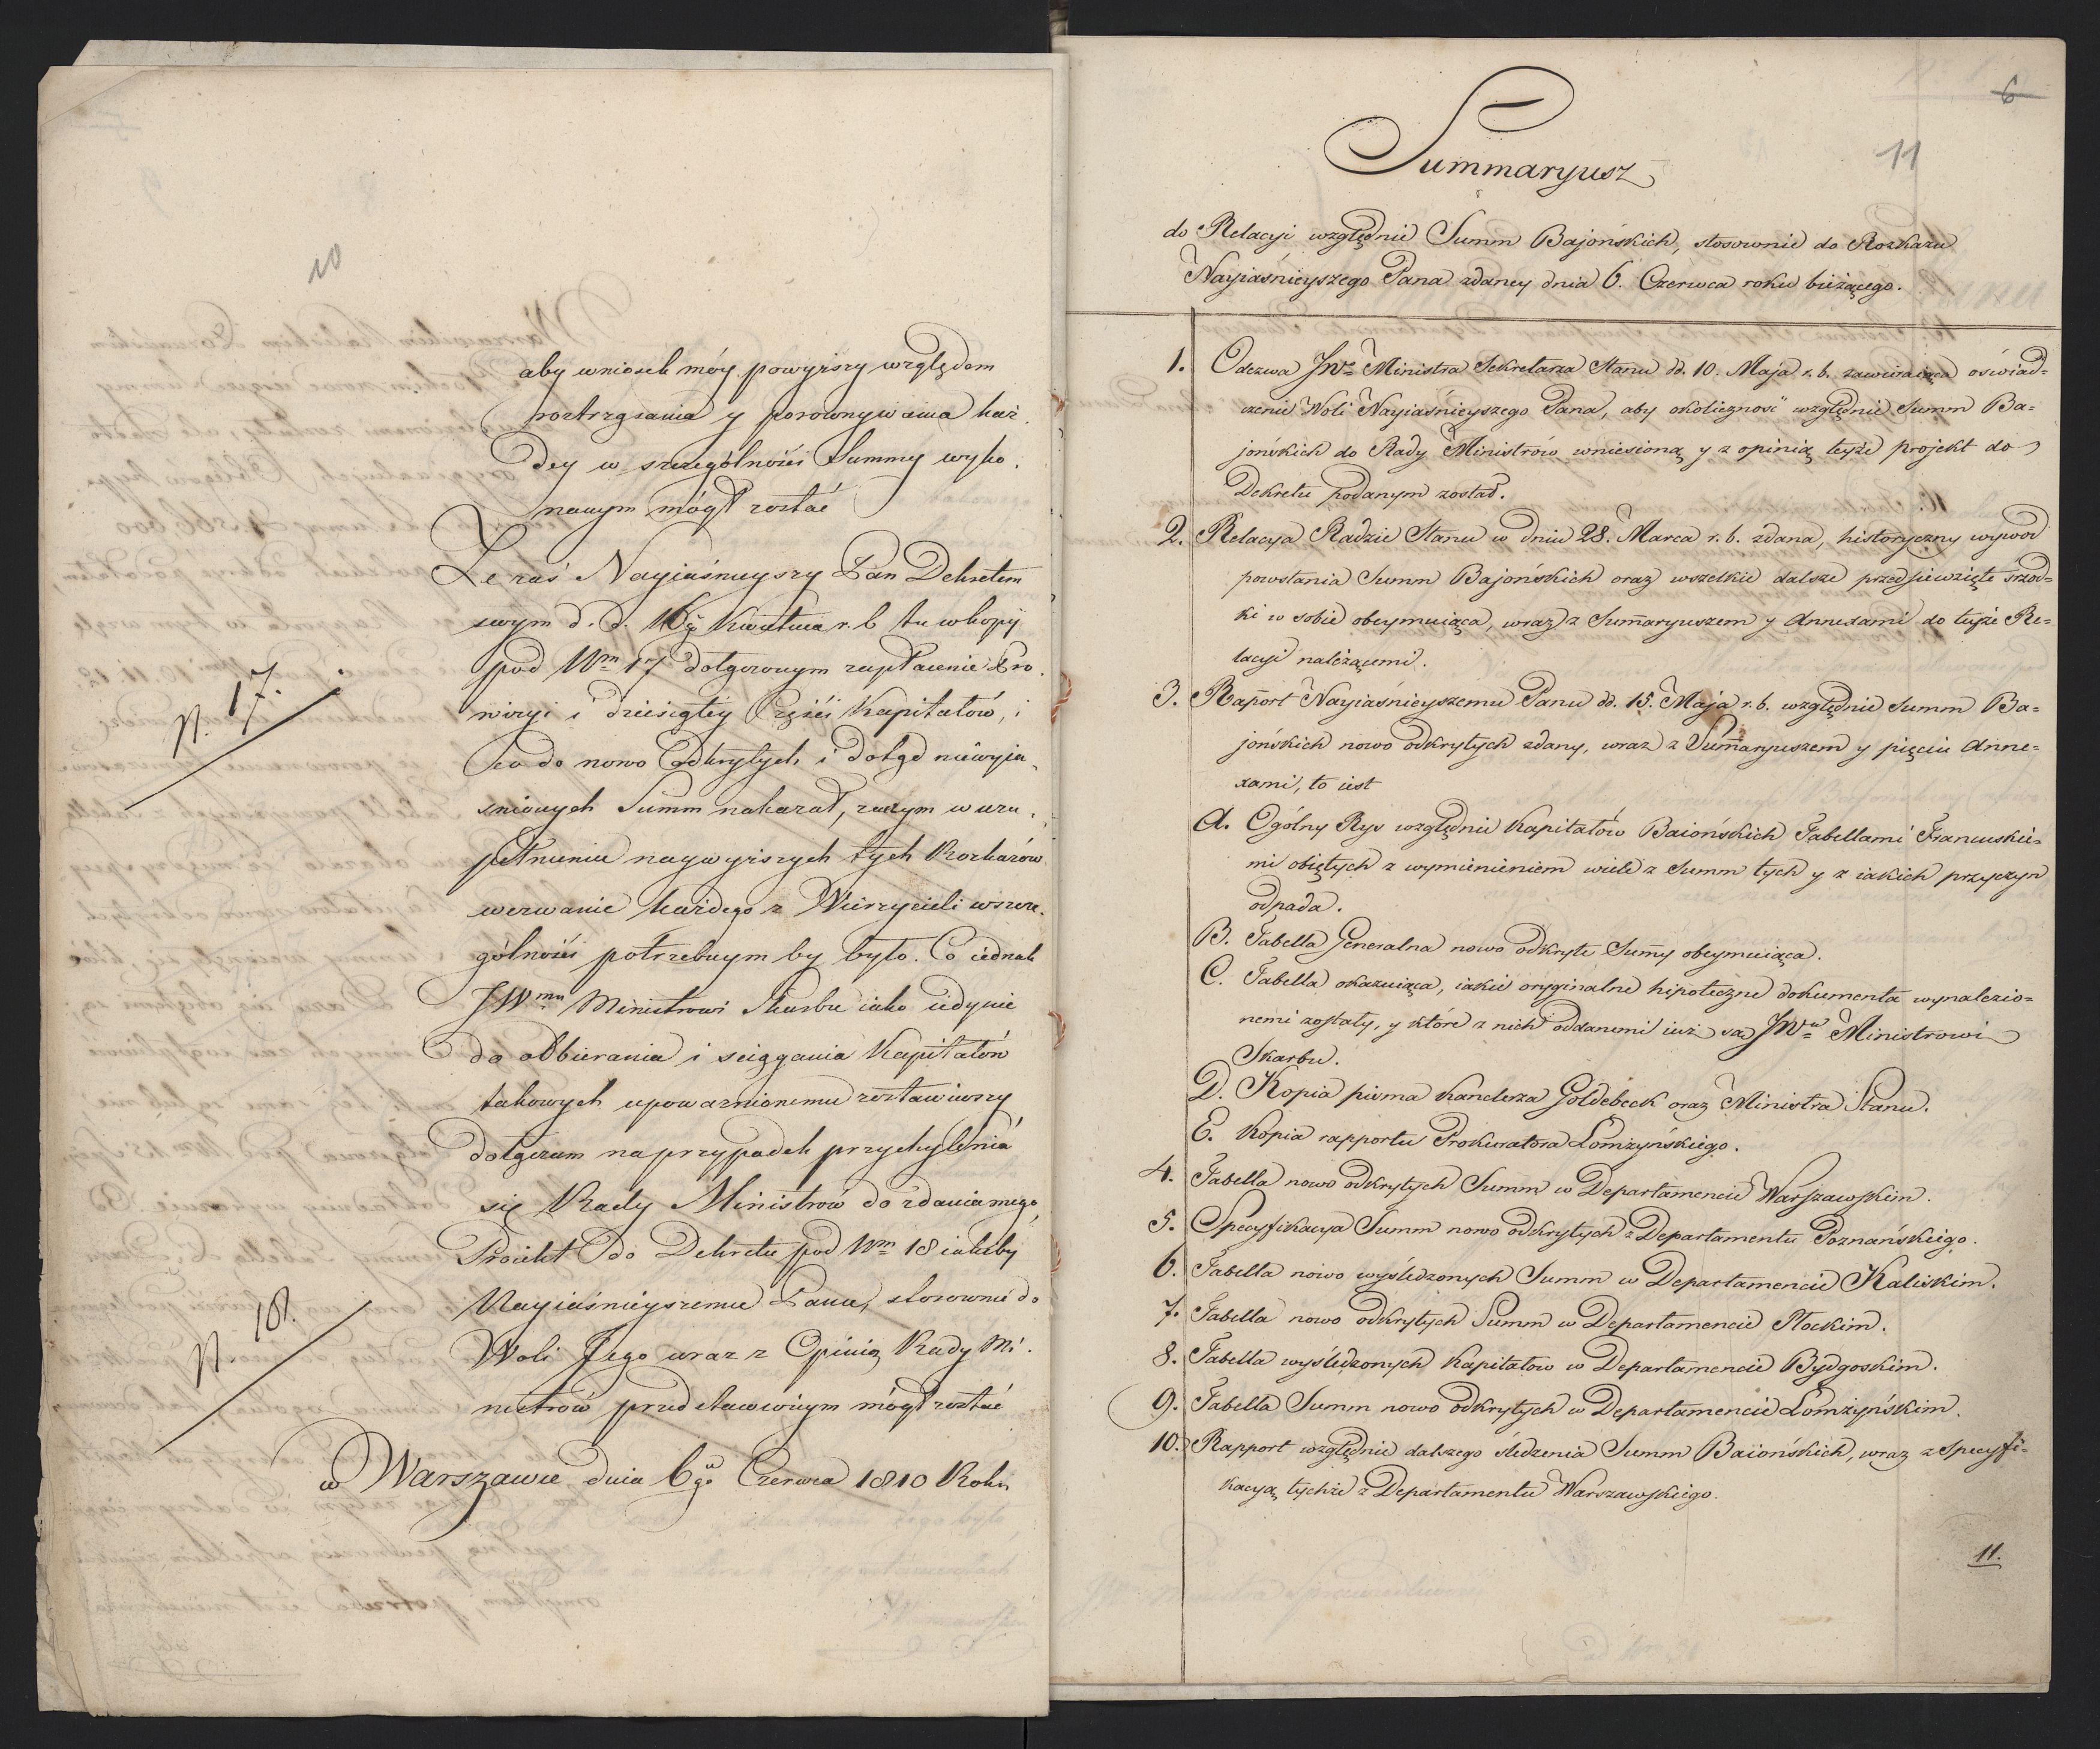 10
aby wniosek móy powyższy względem
roztrząsania y porownywania każ.
dey w szczególnośći Summy wyko.
nanym mógł zostać
Ze zaś Nayiaśnieyszy Pan Dekretem
swym d. d. 16go Kwietnia r. b tu w kopij
pod Nrm 17 dołączonym zapłacenie Pro.
wizyi i dziesiątey Części Kapitałów, i
co do nowo Odkrytych i dotąd niewyia.
śnionych Summ nakazał, zaczym w uzu.
pełnieniu naywyższych tych Rozkazów
wezwanie każdego z Wierzycieli wszcze.
gólnośći potrzebnym by było. Co iednak
JWmu Ministrowi Skarbu iako iedynie
do odbierania i sciągania Kapitałów
takowych upoważnionemu zostawiwszy
dołączam na przypadek przychylenia
się Rady Ministrów do zdania mego,
Proiekt do Dekretu pod Nrm 18 iakiby
Nayiaśnieyszemu Panu, stosownie do
Woli Jego wraz z Opinią Rady Mi.
nistrów przedstawionym mógł zostać
w Warszawie dnia 6go Czerwca 1810 Roku
N. 17.
N. 18.
6
11
Summaryusz
do Relacyi względnie Summ Bajońskich, stosownie do Rozkazu
Nayiaśnieyszego Pana zdaney dnia 6. Czerwca roku bieżącego.
1. Odezwa JWo Ministra Sekretarza Stanu dd. 10. Maja r. b. zawieraiąca oświad=
czenie Woli Nayiaśnieyszego Pana, aby okoliczność względnie Summ Ba=
jońskich do Rady Ministrów wniesioną y z opinią teyże projekt do
Dekretu podanym został.
2. Relacya Radzie Stanu w dniu 28. Marca r. b. zdana, historyczny wywod
powstania Summ Bajońskich oraz wszelkie dalsze przedsiewzięte srzod=
ki w sobie obeymuiąca, wraz z Sum̄aryuszem y Annexami do teyże Re=
lacyi należącemi.
3. Raport Nayiaśnieyszemu Panu dd. 15. Maja r. b. względnie Summ Ba=
jońskich nowo odkrytych zdany, wraz z Sum̄aryuszem y pięciu Anne=
xami, to iest
A. Ogólny Rys względnie Kapitałów Baiońskich Tabellami Francuskie=
mi obiętych z wymienieniem wiele z Summ tych y z iakich przyczyn
odpada.
B. Tabella Generalna nowo odkryte Sum̄y obeymuiąca.
C. Tabella okazuiąca, iakie oryginalne hipoteczne dokumenta wynalezio=
nemi zostały, y które z nich oddanemi iuż są JWu Ministrowi
Skarbu.
D. Kopia pisma Kanclerza Goldebeck oraz Ministra Stanu.
E. Kopia rapportu Prokuratora Łomżyńskiego.
4. Tabella nowo odkrytych Summ w Departamencie Warszawskim.
5. Specyfikacya Summ nowo odkrytych z Departamentu Poznańskiego.
6. Tabella nowo wyśledzonych Summ w Departamencie Kaliskim.
7. Tabella nowo odkrytych Summ w Departamencie Płockim.
8. Tabella wyśledzonych Kapitałow w Departamencie Bydgoskim.
9. Tabella Summ nowo odkrytych w Departamencie Łomżyńskim.
10. Rapport względnie dalszego śledzenia Summ Baiońskich, wraz z specyfi=
kacyą tychże z Departamentu Warszawskiego.
11.